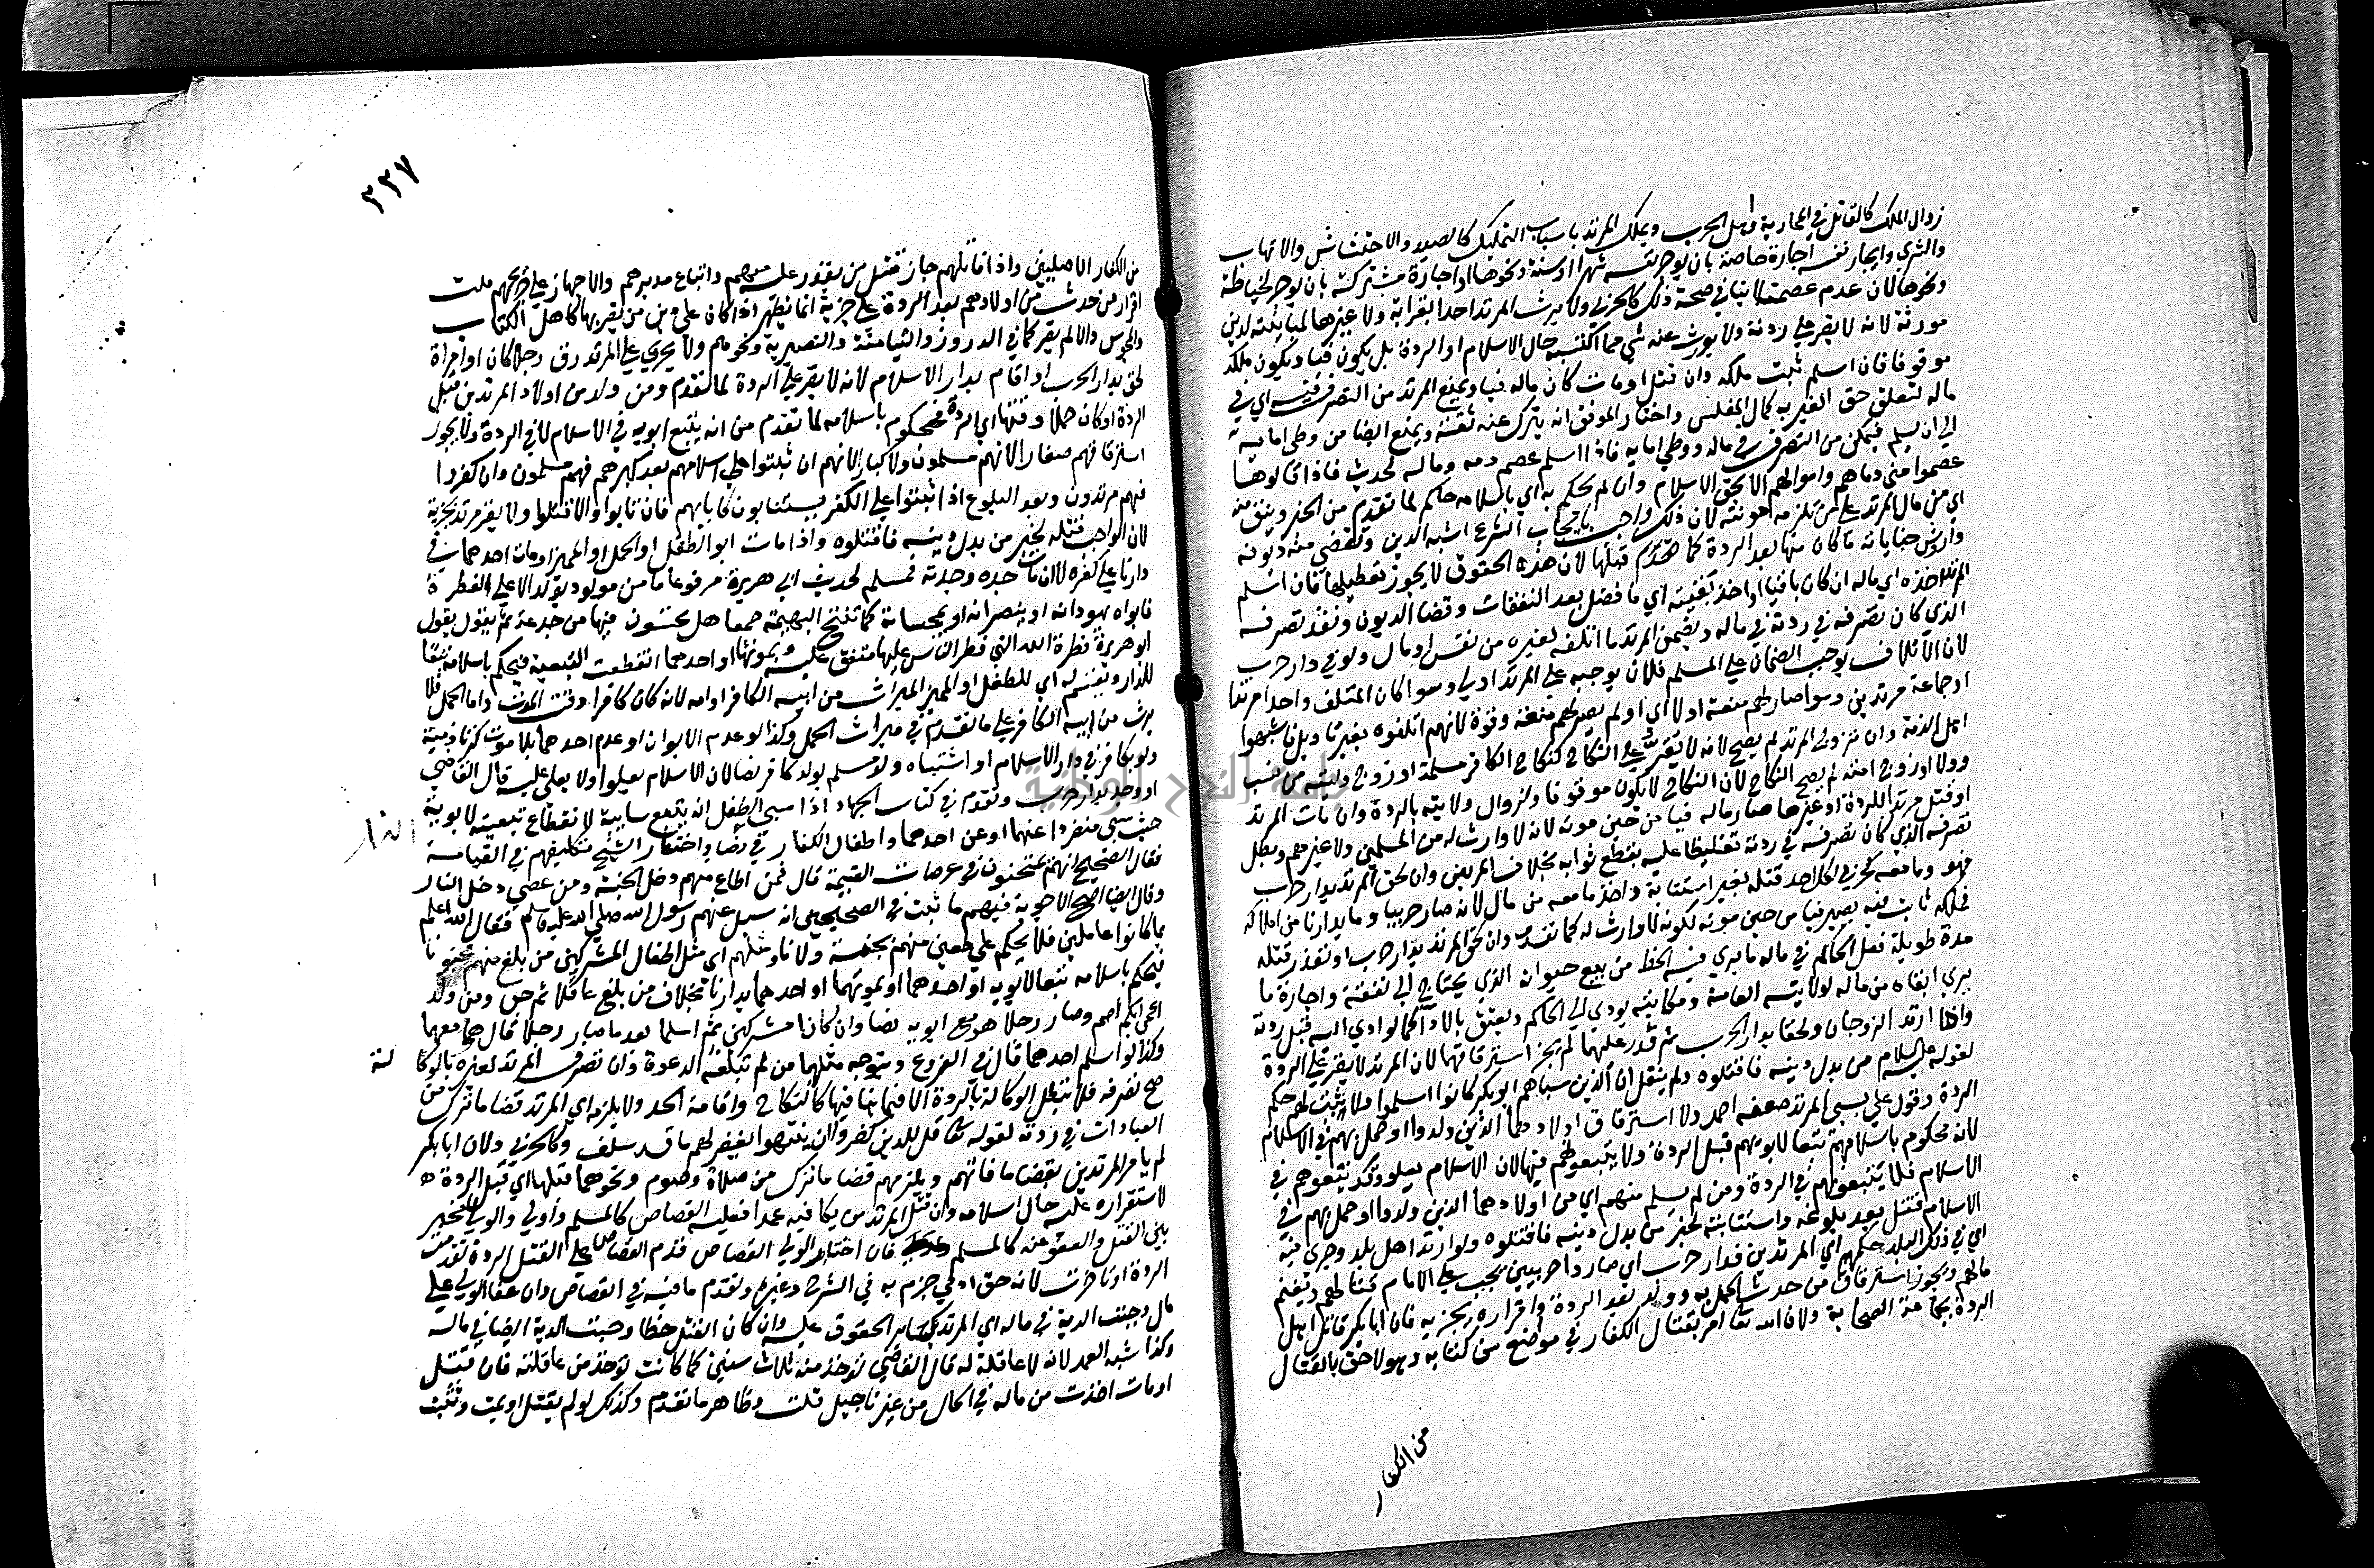 زوال الملك كالقاتل في المحاربة واهل الحرب ويملك المرتد باسباب التمليك كالصيد والاحتشاش والاتهاب
والشرى وايجار نفسه اجارة خاصة بان يوجر نفسه شهرا او سنة ونحوها او اجارة مشتركة بان يوجر لخياطة
ونحوها لان عدم عصمته لا ينافي صحة ذلك كالحربي ولا يرث المرتد احدا بقرابة ولا غيرها لمباينته لدين
مورثه لانه لا يقر على ردته ولا يورث عنه شي مما اكتسبه حال الاسلام او الردة بل يكون فيا ويكون ملكه
موقوفا فان اسلم ثبت ملكه وان قتل او مات كان ماله فيا ويمنع المرتد من التصرف فيه اي في
ماله لتعلق حق الغير به كمال المفلس واختار الموفق انه يترك عند ثقة ويمنع ايضا من وطي امايه
الى ان يسلم فيمكن من التصرف في ماله ووطي امايه فاذا اسلم عصم دمه وماله لحديث فاذا قالوها
عصموا مني دماهم واموالهم الا بحق الاسلام وان لم يحكم به اي باسلامه حاكم لما تقدم من الخبر وينفق منه
اي من مال المرتد على من تلزمه مونته لان ذلك واجب بايجاب الشرع اشبه الدين وتقضى منه ديونه
واروش جناياته ما كان منها بعد الردة كما تقدم قبلها لان هذه الحقوق لا يجوز تعطيلها فان اسلم
المرتد اخذه اي ماله ان كان باقيا او اخذ بقيته اي ما فضل بعد النفقات وقضا الديون ونفذ تصرفه
الذي كان تصرفه في ردته في ماله ويضمن المرتد ما اتلفه لغيره من نفس او مال ولو في دار حرب
لان الاتلاف يوجب الضمان على المسلم فلان يوجبه على المرتد اولى وسوا كان المتلف واحدا مرتدا
او جماعة مرتدين وسوا صار لهم منعة اولا اي او لم يصر لهم منعة وقوة لانهم اتلفوه بغير تاويل فاشبهوا
اهل الذمة وان تزوج المرتد لم يصح لانه لا يقر على النكاح كنكاح الكافر مسلمة او زوج وليته من نسب
وولا او زوج امته لم يصح النكاح لان النكاح لا يكون موقوفا ولزوال ولايته بالردة وان مات المرتد
او قتل مرتدا للردة او غيرها صار ماله فيا من حين موته لانه لا وارث له من المسلمين ولا غيرهم وبطل
تصرفه الذي كان تصرفه في ردته تغليظا عليه بقطع ثوابه بخلاف المريض وان لحق المرتد بدار حرب
فهو وما معه كحربي لكل احد قتله بغير استتابة واخذ ما معه من مال لانه صار حربيا وما بدارنا من املاكه
فملكه ثابت فيه يصير فيا من حين موته لكونه لا وارث له كما تقدم وان لحق المرتد بدار حرب او تعذر قتله
مدة طويلة فعل الحاكم في ماله ما يرى فيه الحظ من بيع حيوانه الذي يحتاج الى نفقة واجارة ما
يرى ابقاه من ماله لولايته العامة ومكاتبه يودي الى الحاكم ويعتق بالاداء كما لو ادى اليه قبل ردته
واذا ارتد الزوجان ولحقا بدار الحرب ثم قدر عليهما لم يجز استرقاقهما لان المرتد لا يقر على الردة
لقوله عليه السلام من بدل دينه فاقتلوه ولم ينقل ان الذين سباهم ابو بكر كانوا اسلموا ولا يثبت لهم حكم
الردة وقول علي يسبى المرتد ضعفه احمد ولا استرقاق اولادهما الذين ولدوا او حمل بهم في الاسلام
لانه محكوم باسلامهم تبعا لابويهم قبل الردة ولا يتبعوهم فيها لان الاسلام يعلو وقد تبعوهم في
الاسلام فلا يتبعونهم في الردة ومن لم يسلم منهم اي من اولادهما الذين ولدوا او حمل بهم في
الاسلام قتل بعد بلوغه واستتابته لخبر من بدل دينه فاقتلوه ولو ارتد اهل بلد وجرى فيه
اي في ذلك البلد حكمهم اي المرتدين فدار حرب اي صاروا حربيين يجب على الامام قتالهم وتغنم
مالهم ويجوز استرقاق من حدث الحمل به وولد بعد الردة واقراره بجزية فان ابا بكر قاتل اهل
الردة بجماعة الصحابة ولان الله تعا امر بقتال الكفار في مواضع من كتابه وهولا احق بالقتال
من الكفار
٢٢٧
من الكفار الاصليين واذا قاتلهم جاز قتل من يقدر عليه منهم واتباع مدبرهم والاجهاز على جريحهم قلت
اقرار من حدث من اولادهم بعد الردة على جزية انما يظهر اذا كان على دين من يقر بها كاهل الكتاب
والمجوس والا لم يقر كما في الدروز والتيامنة والنصيرية ونحوهم ولا يجري على المرتد رق رجلا كان او امراة
لحق بدار الحرب او اقام بدار الاسلام لانه لا يقر على الردة لما تقدم ومن ولد من اولاد المرتدين قبل
الردة او كان حملا وقتها اي الردة فمحكوم باسلامه لما تقدم من انه يتبع ابويه في الاسلام لا في الردة ولا يجوز
استرقاقهم صغارا لانهم مسلمون ولا كبارا لانهم ان ثبتوا على اسلامهم بعد كبرهم فهم مسلمون وان كفروا
فهم مرتدون وبعد البلوغ اذا ثبتوا على الكفر يستتابون كابايهم فان تابوا والا قتلوا ولا يقر مرتد بجزية
لان الواجب قتله لخبر من بدل دينه فاقتلوه واذا مات ابو الطفل او الحمل او المميز او مات احدهما في
دارنا على كفره لا ان مات جده وجدته فمسلم لحديث ابي هريرة مرفوعا ما من مولود يولد الا على الفطرة
فابواه يهودانه او ينصرانه او يمجسانه كما تنتج البهيمة جمعا هل تحسون فيها من جدعا ثم يقول يقول
ابو هريرة فطرة الله التي فطر الناس عليها متفق عليه وبموتهما او احدهما انقطعت التبعية فيحكم باسلامه تبعا
للدار ويقسم له اي للطفل او المميز الميراث من ابيه الكافر او امه لانه كان كافرا وقت الموت واما الحمل فلا
يرث من ابيه الكافر على ما تقدم في ميراث الحمل وكذا لو عدم الابوان او عدم احدهما بلا موت كزنا ذمية
ولو بكافر في دار الاسلام او اشتباه ولد مسلم بولد كافر نصا لان الاسلام يعلوا ولا يعلى عليه قال القاضي
او وجد بدار حرب وتقدم في كتاب الجهاد اذا سبى الطفل انه يتبع سابيه لانقطاع تبعيته لابويه
حيث سبي منفردا عنهما او عن احدهما واطفال الكفار في النار نصا واختار الشيخ تكليفهم في القيامة
فقال الصحيح انهم يمتحنون في عرصات القيمة قال فمن اطاع منهم دخل الجنة ومن عصى دخل النار
وقال ايضا اصح الاجوبة فيهم ما ثبت في الصحيحين انه سيل عنهم رسول الله صلى الله عليه وسلم فقال الله اعلم
بما كانوا عاملين فلا يحكم على معين منهم بجنة ولا نار ومثلهم اي مثل اطفال المشركين من بلغ منهم مجنونا
فيحكم باسلامه تبعا لابويه او احدهما او بموتهما او احدهما بدارنا بخلاف من بلغ عاقلا ثم جن ومن ولد
اعمى ابكم اصم وصار رجلا هو مع ابويه نصا وان كانا مشركين ثم اسلما بعد ما صار رجلا قال هو معهما
وكذا لو اسلم احدهما قال في الفروع ويتوجه مثلهما من لم تبلغه الدعوة وان تصرف المرتد لغيره بالوكالة
صح تصرفه فلا تبطل الوكالة بالردة الا فيما ينافيها كالنكاح واقامة الحد ولا يلزمه اي المرتد قضا ما ترك من
العبادات في ردته لقوله تعا قل للذين كفروا ان ينتهوا يغفر لهم ما قد سلف وكالحربي ولان ابا بكر
لم يامر المرتدين بقضا ما فاتهم ويلزمهم قضا ما ترك من صلاة وصوم ونحوهما قبلها اي قبل الردة
لاستقراره عليه حال اسلامه وان قتل المرتد من يكافيه عمدا فعليه القصاص كالمسلم واولى والولي مخير
بين القتل والعفو عنه كالمسلم فان اختار الولي القصاص قدم القصاص على القتل الردة تقدمت
الردة او تاخرت لانه حق ادمي جزم به في الشرح وغيره وتقدم ما فيه في القصاص وان عفا الولي على
مال وجبت الدية في ماله اي المرتد كساير الحقوق عليه وان كان القتل خطا وجبت الدية ايضا في ماله
وكذا شبه العمد لانه لا عاقلة له قال القاضي توخذ منه ثلاث سنين كما كانت توخذ من عاقلته فان قتل
او مات اخذت من ماله في الحال من غير تاجيل قلت وظاهر ما تقدم وكذلك لو لم يقتل او يمت وتثبت